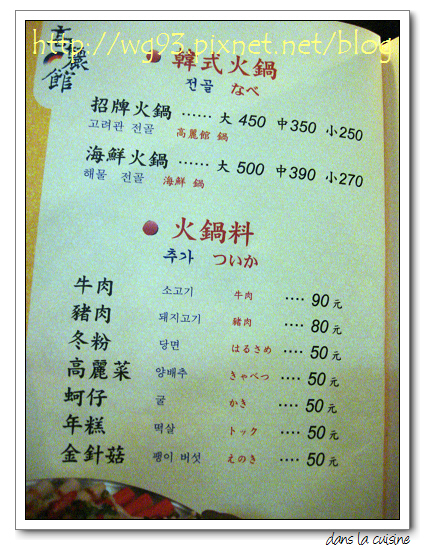 http://wg93.pixnet.net/blog
高麗館
韓式火鍋
전골 なべ
招牌火鍋 ······ 大 450 中350 小250
고려관 전골 高麗館 鍋
海鮮火鍋 ······ 大 500 中390 小270
해물 전골 海鮮 鍋
火鍋料
추가 ついか
牛肉 소고기 牛肉 ···· 90元
豬肉 돼지고기 豬肉 ···· 80元
冬粉 당면 はるさめ ···· 50元
高麗菜 양배추 きゃべつ ···· 50元
蚵仔 굴 かき ···· 50元
年糕 떡살 トック ···· 50元
金針菇 팽이 버섯 えのき ···· 50元
dans la cuisine